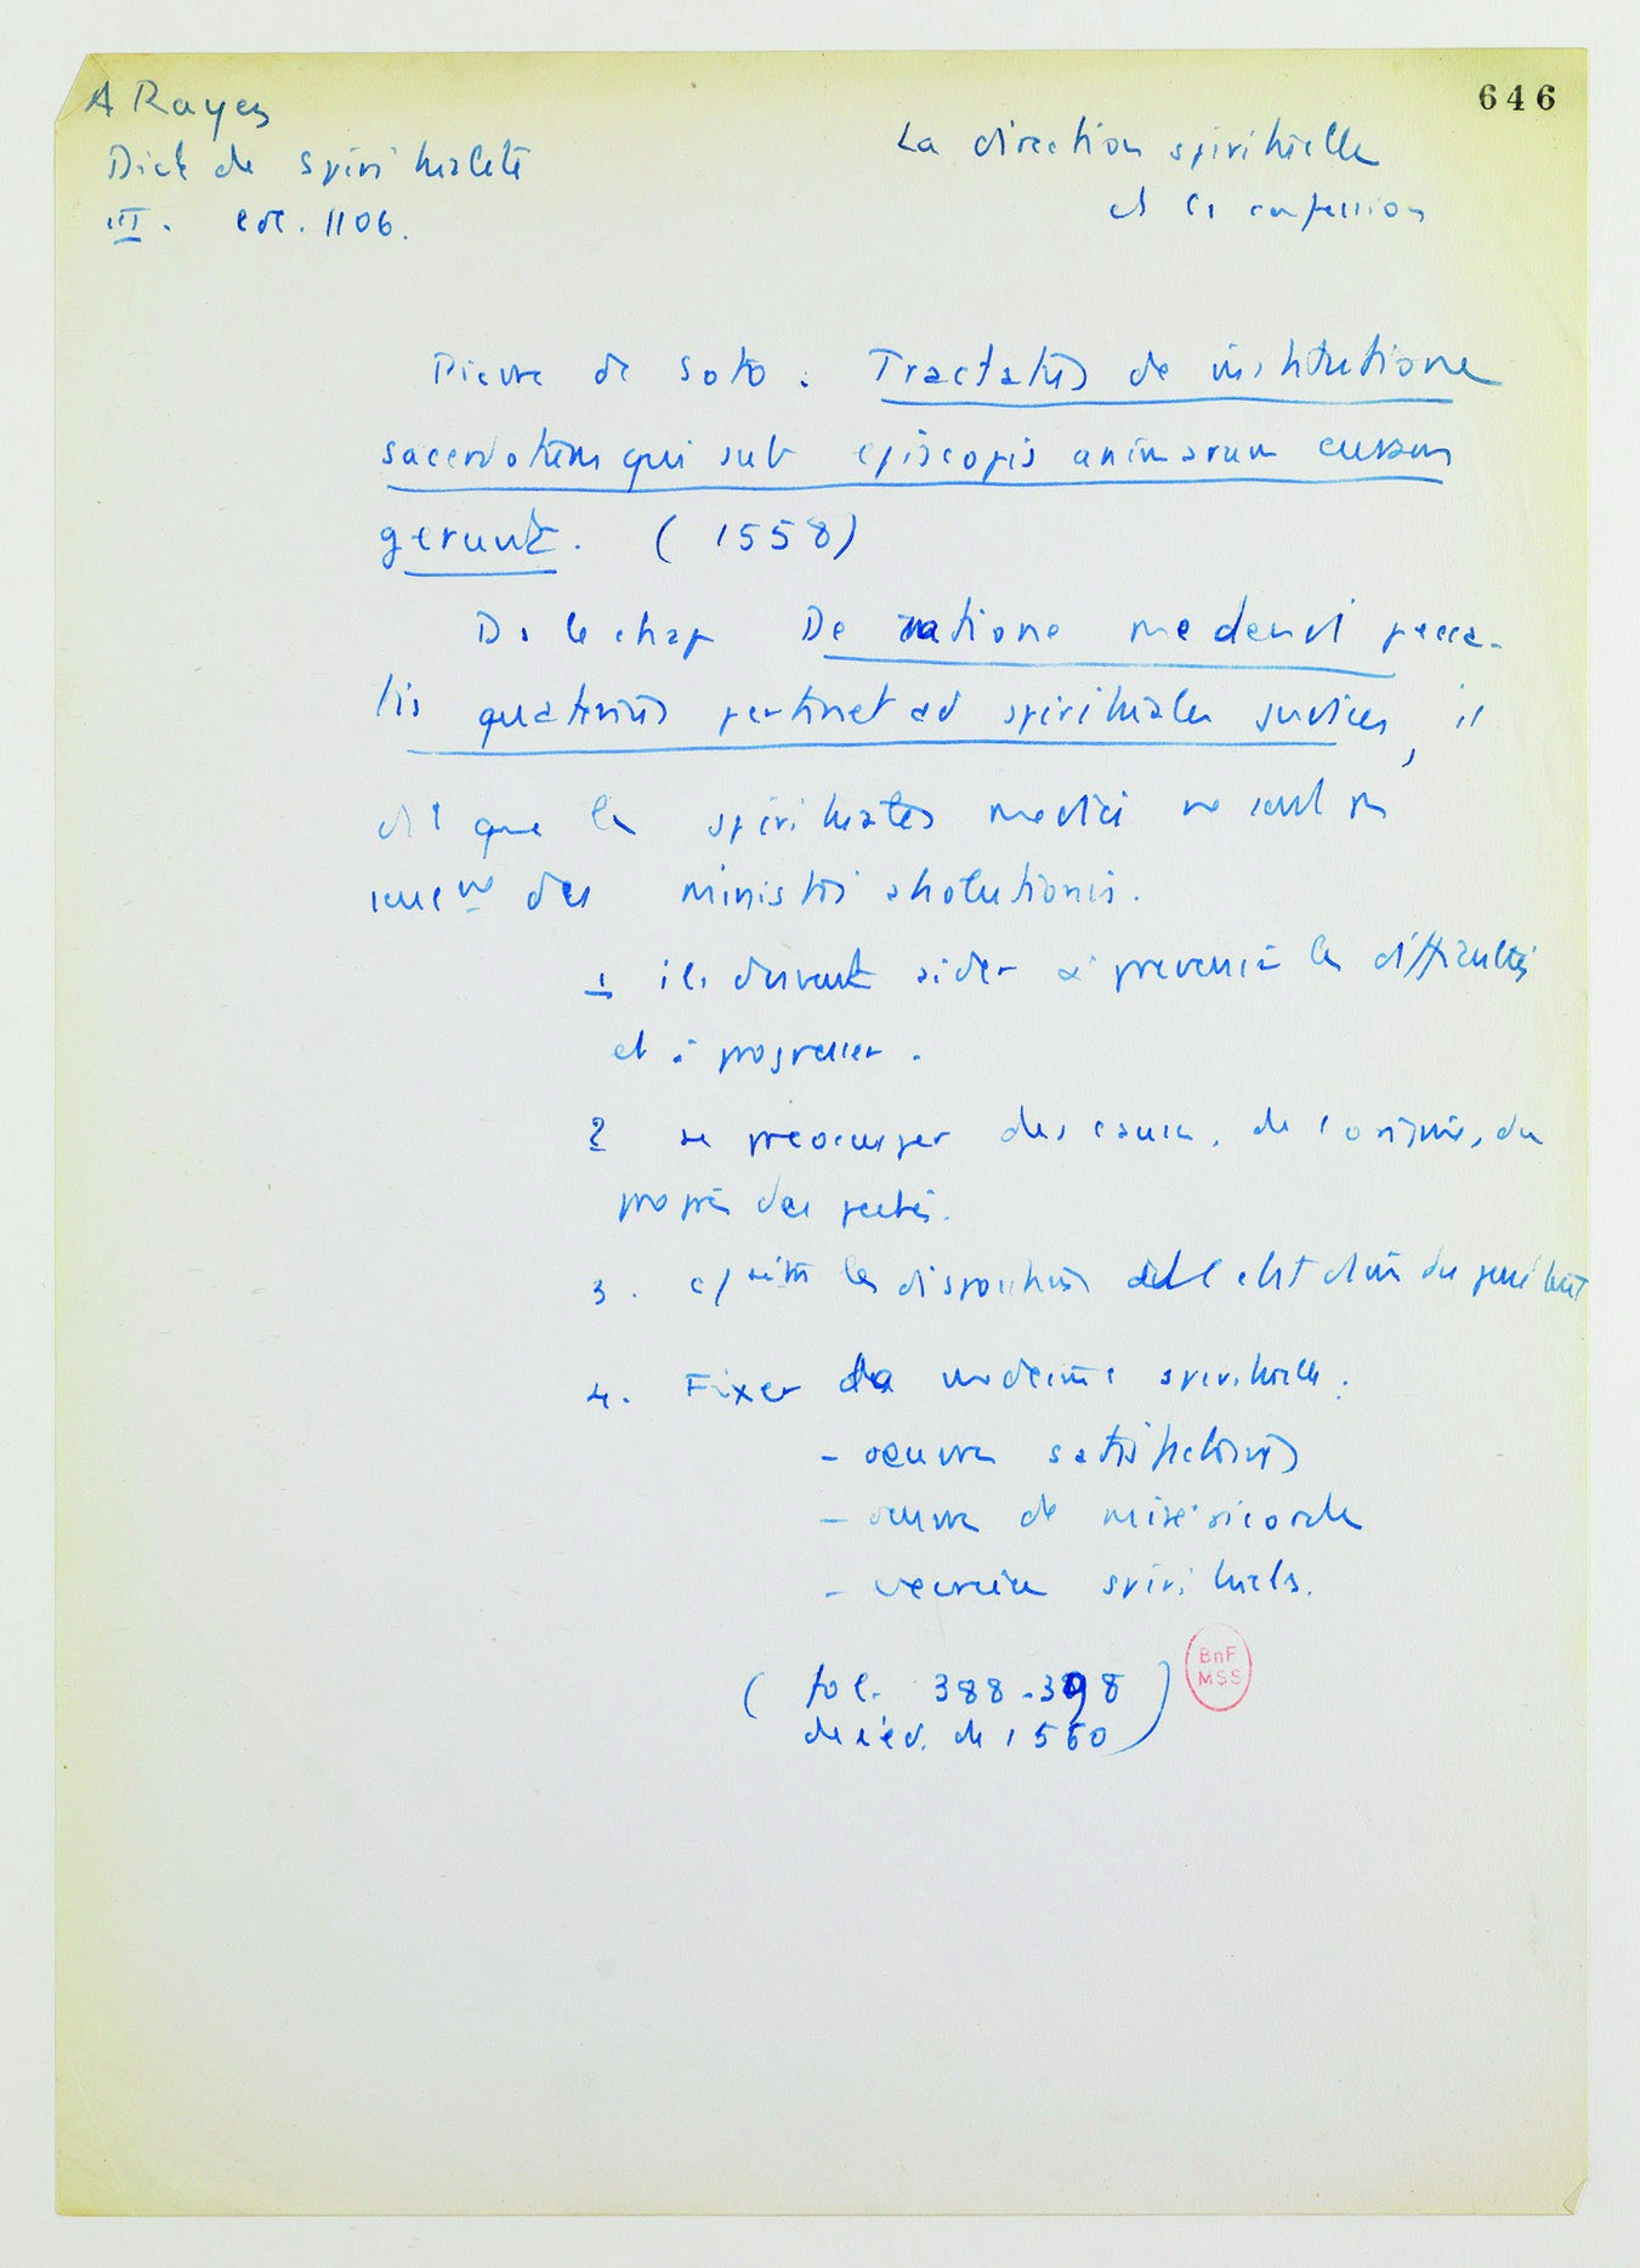 646
A Rayez
Dict de spiritualité
III. col. 1106.
La direction spirituelle
et la confession
Pierre de Soto : Tractatus de institutione
sacerdotum qui sub episcopis animarum curam
gerunt. (1558)
Ds le chap De ratione medendi pecca-
tis quatenus pertinet ad spirituales judices, il
dit que les spirituales medici ne sont
des ministri absolutionis.
1 ils doivent aider à prevenir les difficultés
et à progresser.
2 se préoccuper des causes, de l'origine, du
progrès des péchés.
3. les dispositions du pénitent
4. Fixer la médecine spirituelle :
- oeuvres satisfactoires
- oeuvres de miséricorde
- exercices spirituels.
( fol. 388-398
de l'éd. de 1560 )
BnF
MSS